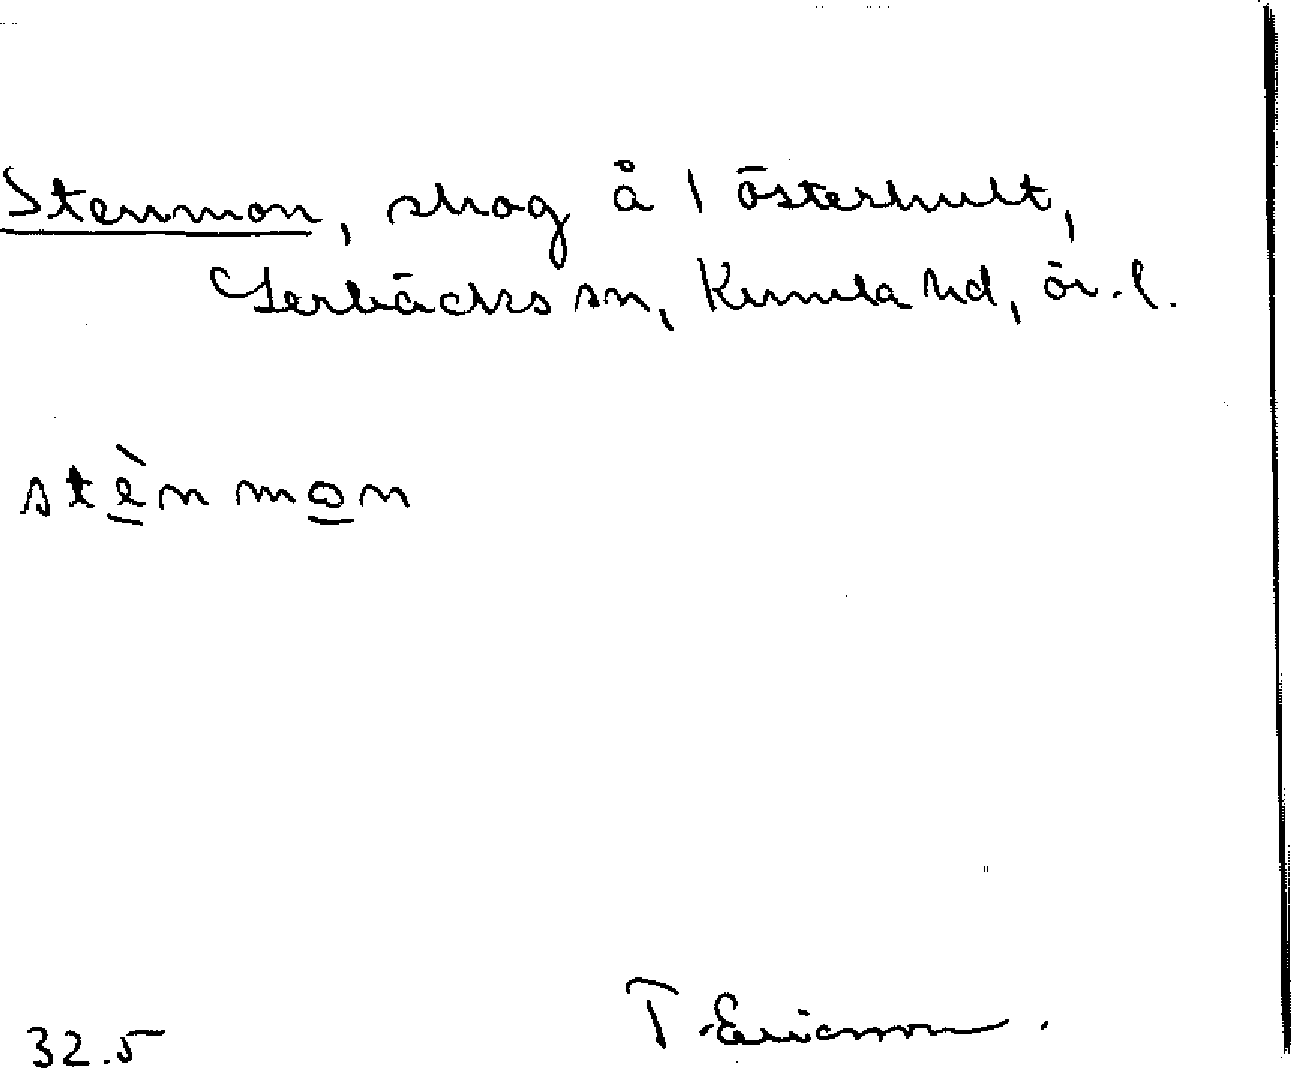 Stenmon, skog å 1 Österhult,
Lerbäcks sn, Kumla hd, ör.l.
stènmon
32.5
T. Ericsson.